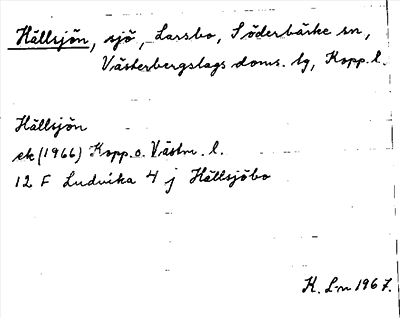 Hällsjön, sjö, Larsbo, Söderbärke sn,
Västerbergslags doms. tg, Kopp. l.
Hällsjön
ek (1966) Kopp. o. Västm. l.
12 F Ludvika 4 j Hällsjöbo
K. L-n 1967.